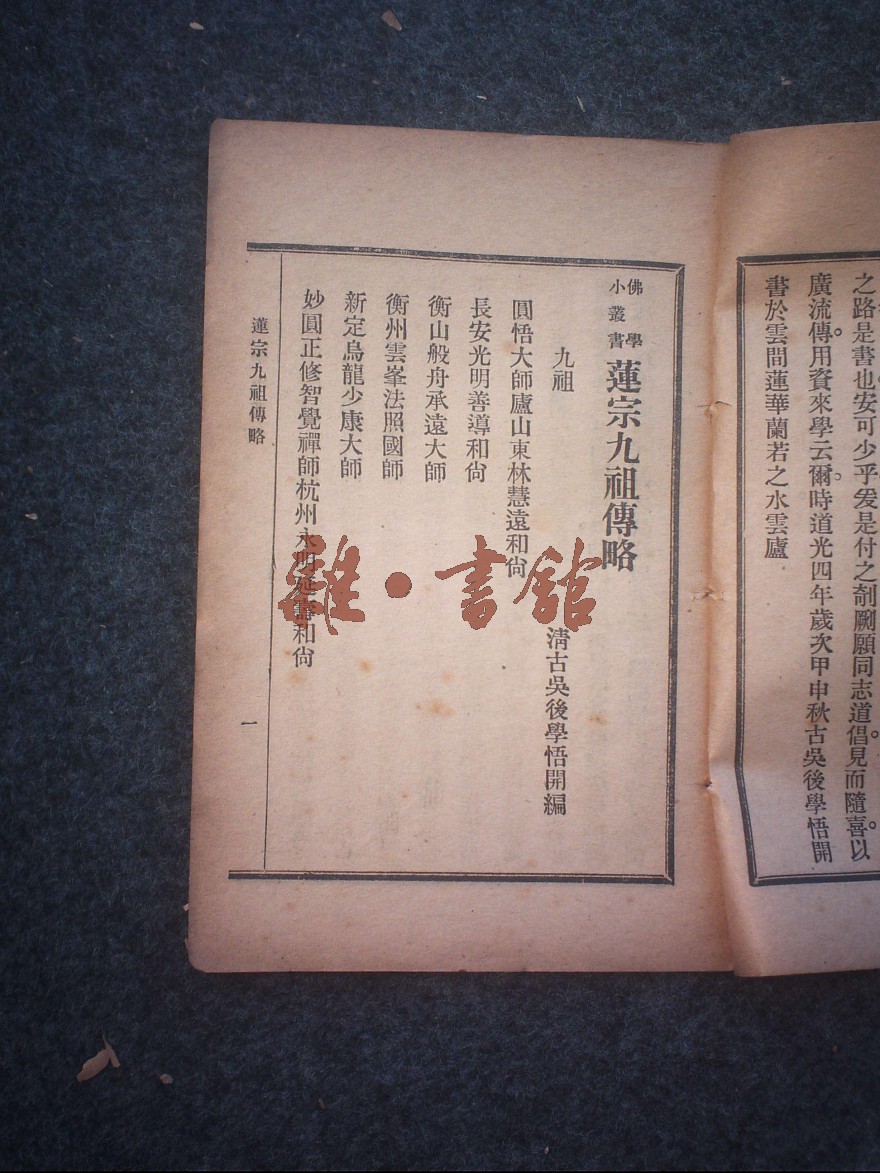 之路是書也安可少乎爰是付之剞劂願同志道倡見而隨喜。以
廣流傳。用資來學云爾。時道光四年歲次甲申秋古吳後學悟開
書於雲間蓮華蘭若之水雲廬
佛學小叢書
蓮宗九祖傳略
九祖
清古吳後學悟開編
圓悟大師廬山東林慧遠和尙
長安光明善導和尙
衡山般舟承遠大師
衡州雲峯法照國師
新定烏龍少康大師
妙圓正修智覺禪師杭州永明延壽和尙
蓮宗九祖傳略
一
雜·書館